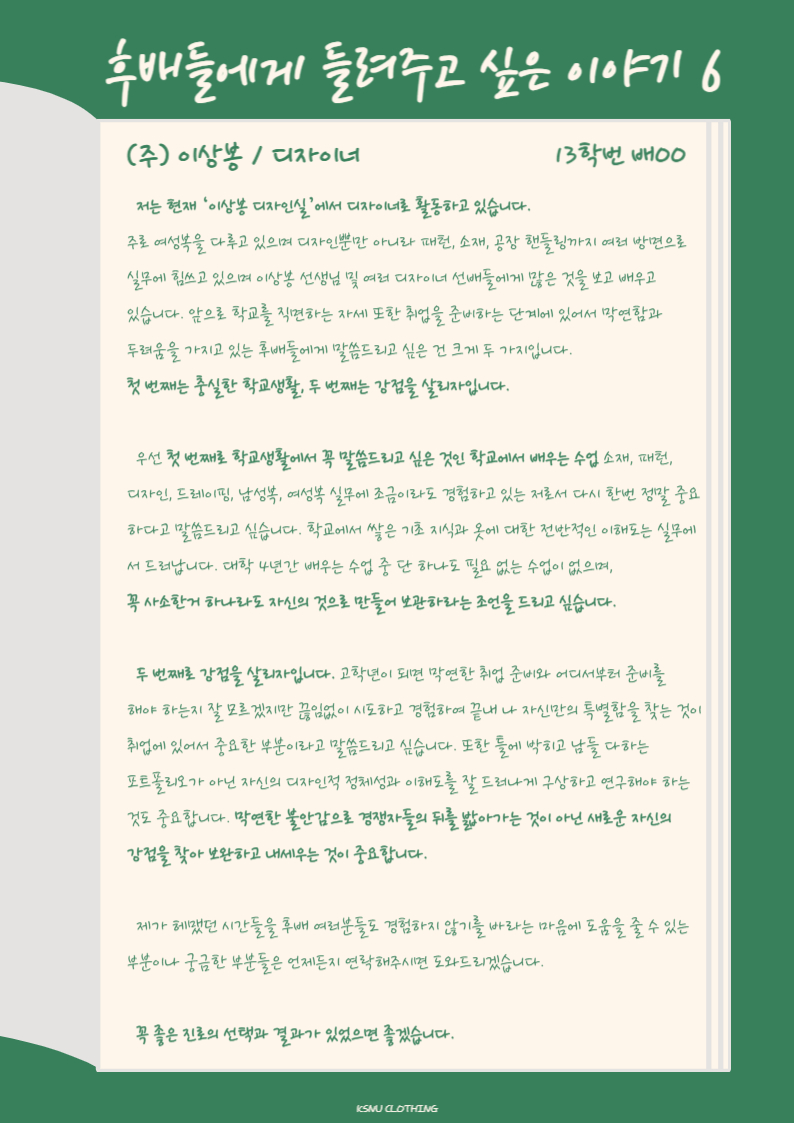 후배들에게 들려주고 싶은 이야기 6
(주) 이상봉 / 디자이너
13학번 배OO
저는 현재 '이상봉 디자인실'에서 디자이너로 활동하고 있습니다.
주로 여성복을 다루고 있으며 디자인뿐만 아니라 패턴, 소재, 공장 핸들링까지 여러 방면으로
실무에 힘쓰고 있으며 이상봉 선생님 및 여러 디자이너 선배들에게 많은 것을 보고 배우고
있습니다. 앞으로 학교를 직면하는 자세 또한 취업을 준비하는 단계에 있어서 막연함과
두려움을 가지고 있는 후배들에게 말씀드리고 싶은 건 크게 두 가지입니다.
첫 번째는 충실한 학교생활, 두 번째는 강점을 살리자입니다.
우선 첫 번째로 학교생활에서 꼭 말씀드리고 싶은 것인 학교에서 배우는 수업 소재, 패턴,
디자인, 드레이핑, 남성복, 여성복 실무에 조금이라도 경험하고 있는 저로서 다시 한번 정말 중요
하다고 말씀드리고 싶습니다. 학교에서 쌓은 기초 지식과 옷에 대한 전반적인 이해도는 실무에
서 드러납니다. 대학 4년간 배우는 수업 중 단 하나도 필요 없는 수업이 없으며,
꼭 사소한거 하나라도 자신의 것으로 만들어 보관하라는 조언을 드리고 싶습니다.
두 번째로 강점을 살리자입니다. 고학년이 되면 막연한 취업 준비와 어디서부터 준비를
해야 하는지 잘 모르겠지만 끊임없이 시도하고 경험하여 끝내 나 자신만의 특별함을 찾는 것이
취업에 있어서 중요한 부분이라고 말씀드리고 싶습니다. 또한 틀에 박히고 남들 다하는
포트폴리오가 아닌 자신의 디자인적 정체성과 이해도를 잘 드러나게 구상하고 연구해야 하는
것도 중요합니다. 막연한 불안감으로 경쟁자들의 뒤를 밟아가는 것이 아닌 새로운 자신의
강점을 찾아 보완하고 내세우는 것이 중요합니다.
제가 헤맸던 시간들을 후배 여러분들도 경험하지 않기를 바라는 마음에 도움을 줄 수 있는
부분이나 궁금한 부분들은 언제든지 연락해주시면 도와드리겠습니다.
꼭 좋은 진로의 선택과 결과가 있었으면 좋겠습니다.
KSNU CLOTHING